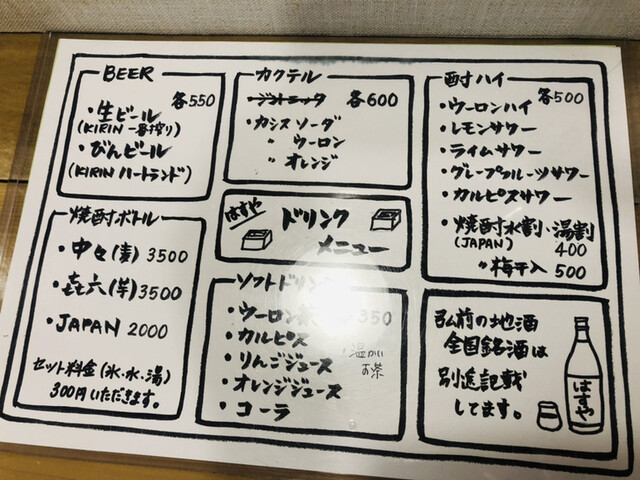 BEER
各550
・生ビール
(KIRIN 一番搾り)
・びんビール
(KIRIN ハートランド)
カクテル
ジントニック 各600
・カシス ソーダ
〃 ウーロン
〃 オレンジ
酎ハイ
各500
・ウーロンハイ
・レモンサワー
・ライムサワー
・グレープフルーツサワー
・カルピスサワー
・焼酎水割・湯割
(JAPAN) 400
〃 梅干入 500
はすや
ドリンク
メニュー
焼酎ボトル
・中々(麦) 3500
・㐂六(芋) 3500
・JAPAN 2000
セット料金(氷、水、湯)
300円いただきます。
ソフトドリンク
・ウーロン茶 350
・カルピス
・りんごジュース
・オレンジジュース
・コーラ
温かい
お茶
弘前の地酒
全国銘酒は
別途記載
してます。
はすや